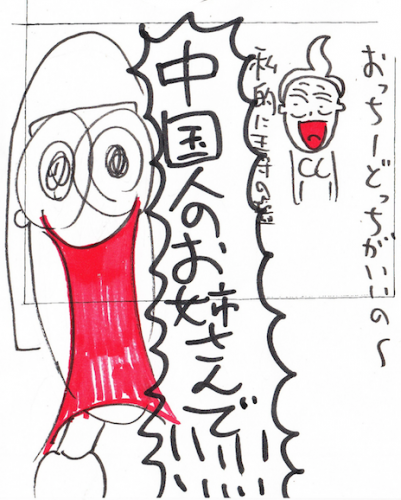 おっちーどっちがいいの〜
私的に
中国人のお姉さんで
いい